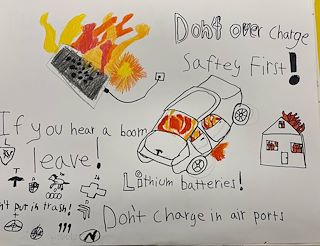 Don't over charge
Saftey First!
If you hear a boom
leave!
Lithium batteries!
n't put in trash!
Don't Charge in air ports